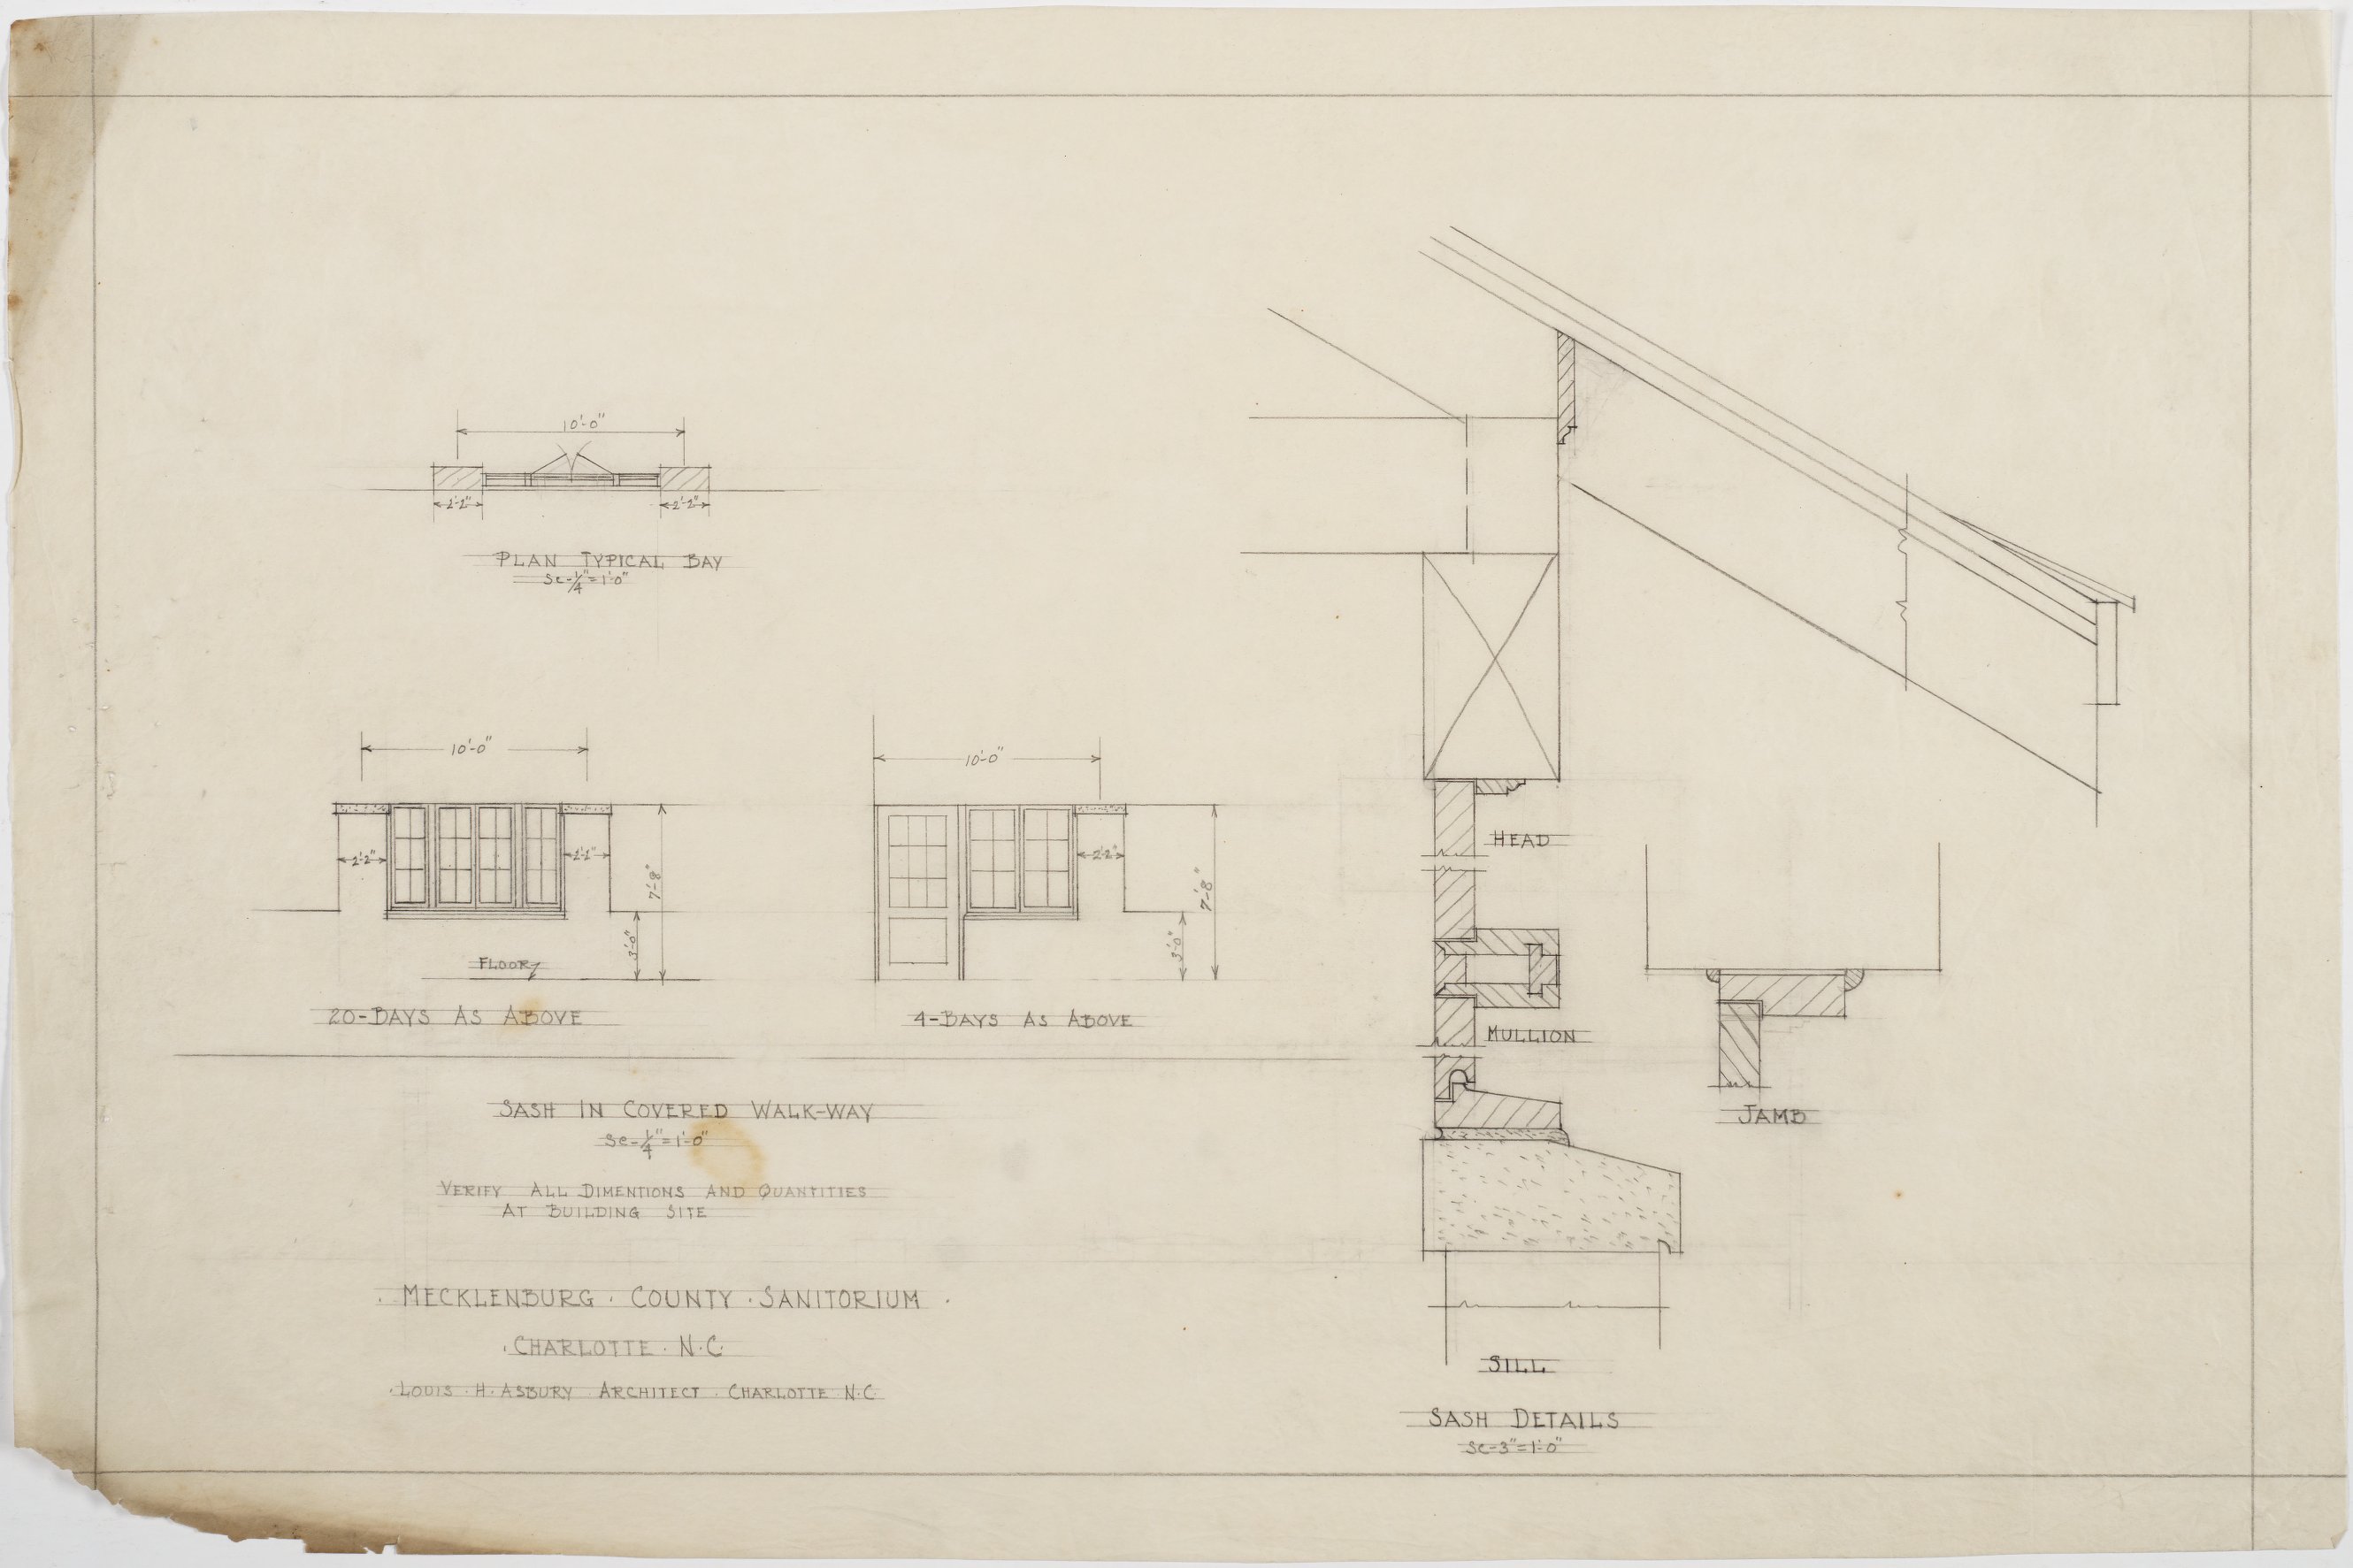 10'-0"
2'-2" 2'-2"
PLAN TYPICAL BAY
SC-1/4"=1'-0"
10'-0"
2'-2" 2'-2"
7'-8"
3'-0"
FLOOR
20-BAYS AS ABOVE
10'-0"
2'-2"
7'-8"
3'-0"
4-BAYS AS ABOVE
SASH IN COVERED WALK-WAY
SC-1/4"=1'-0"
VERIFY ALL DIMENTIONS AND QUANTITIES
AT BUILDING SITE
· MECKLENBURG · COUNTY · SANITORIUM ·
· CHARLOTTE · N·C·
· LOUIS · H · ASBURY · ARCHITECT · CHARLOTTE N·C·
HEAD
MULLION
JAMB
SILL
SASH DETAILS
SC-3"=1'-0"